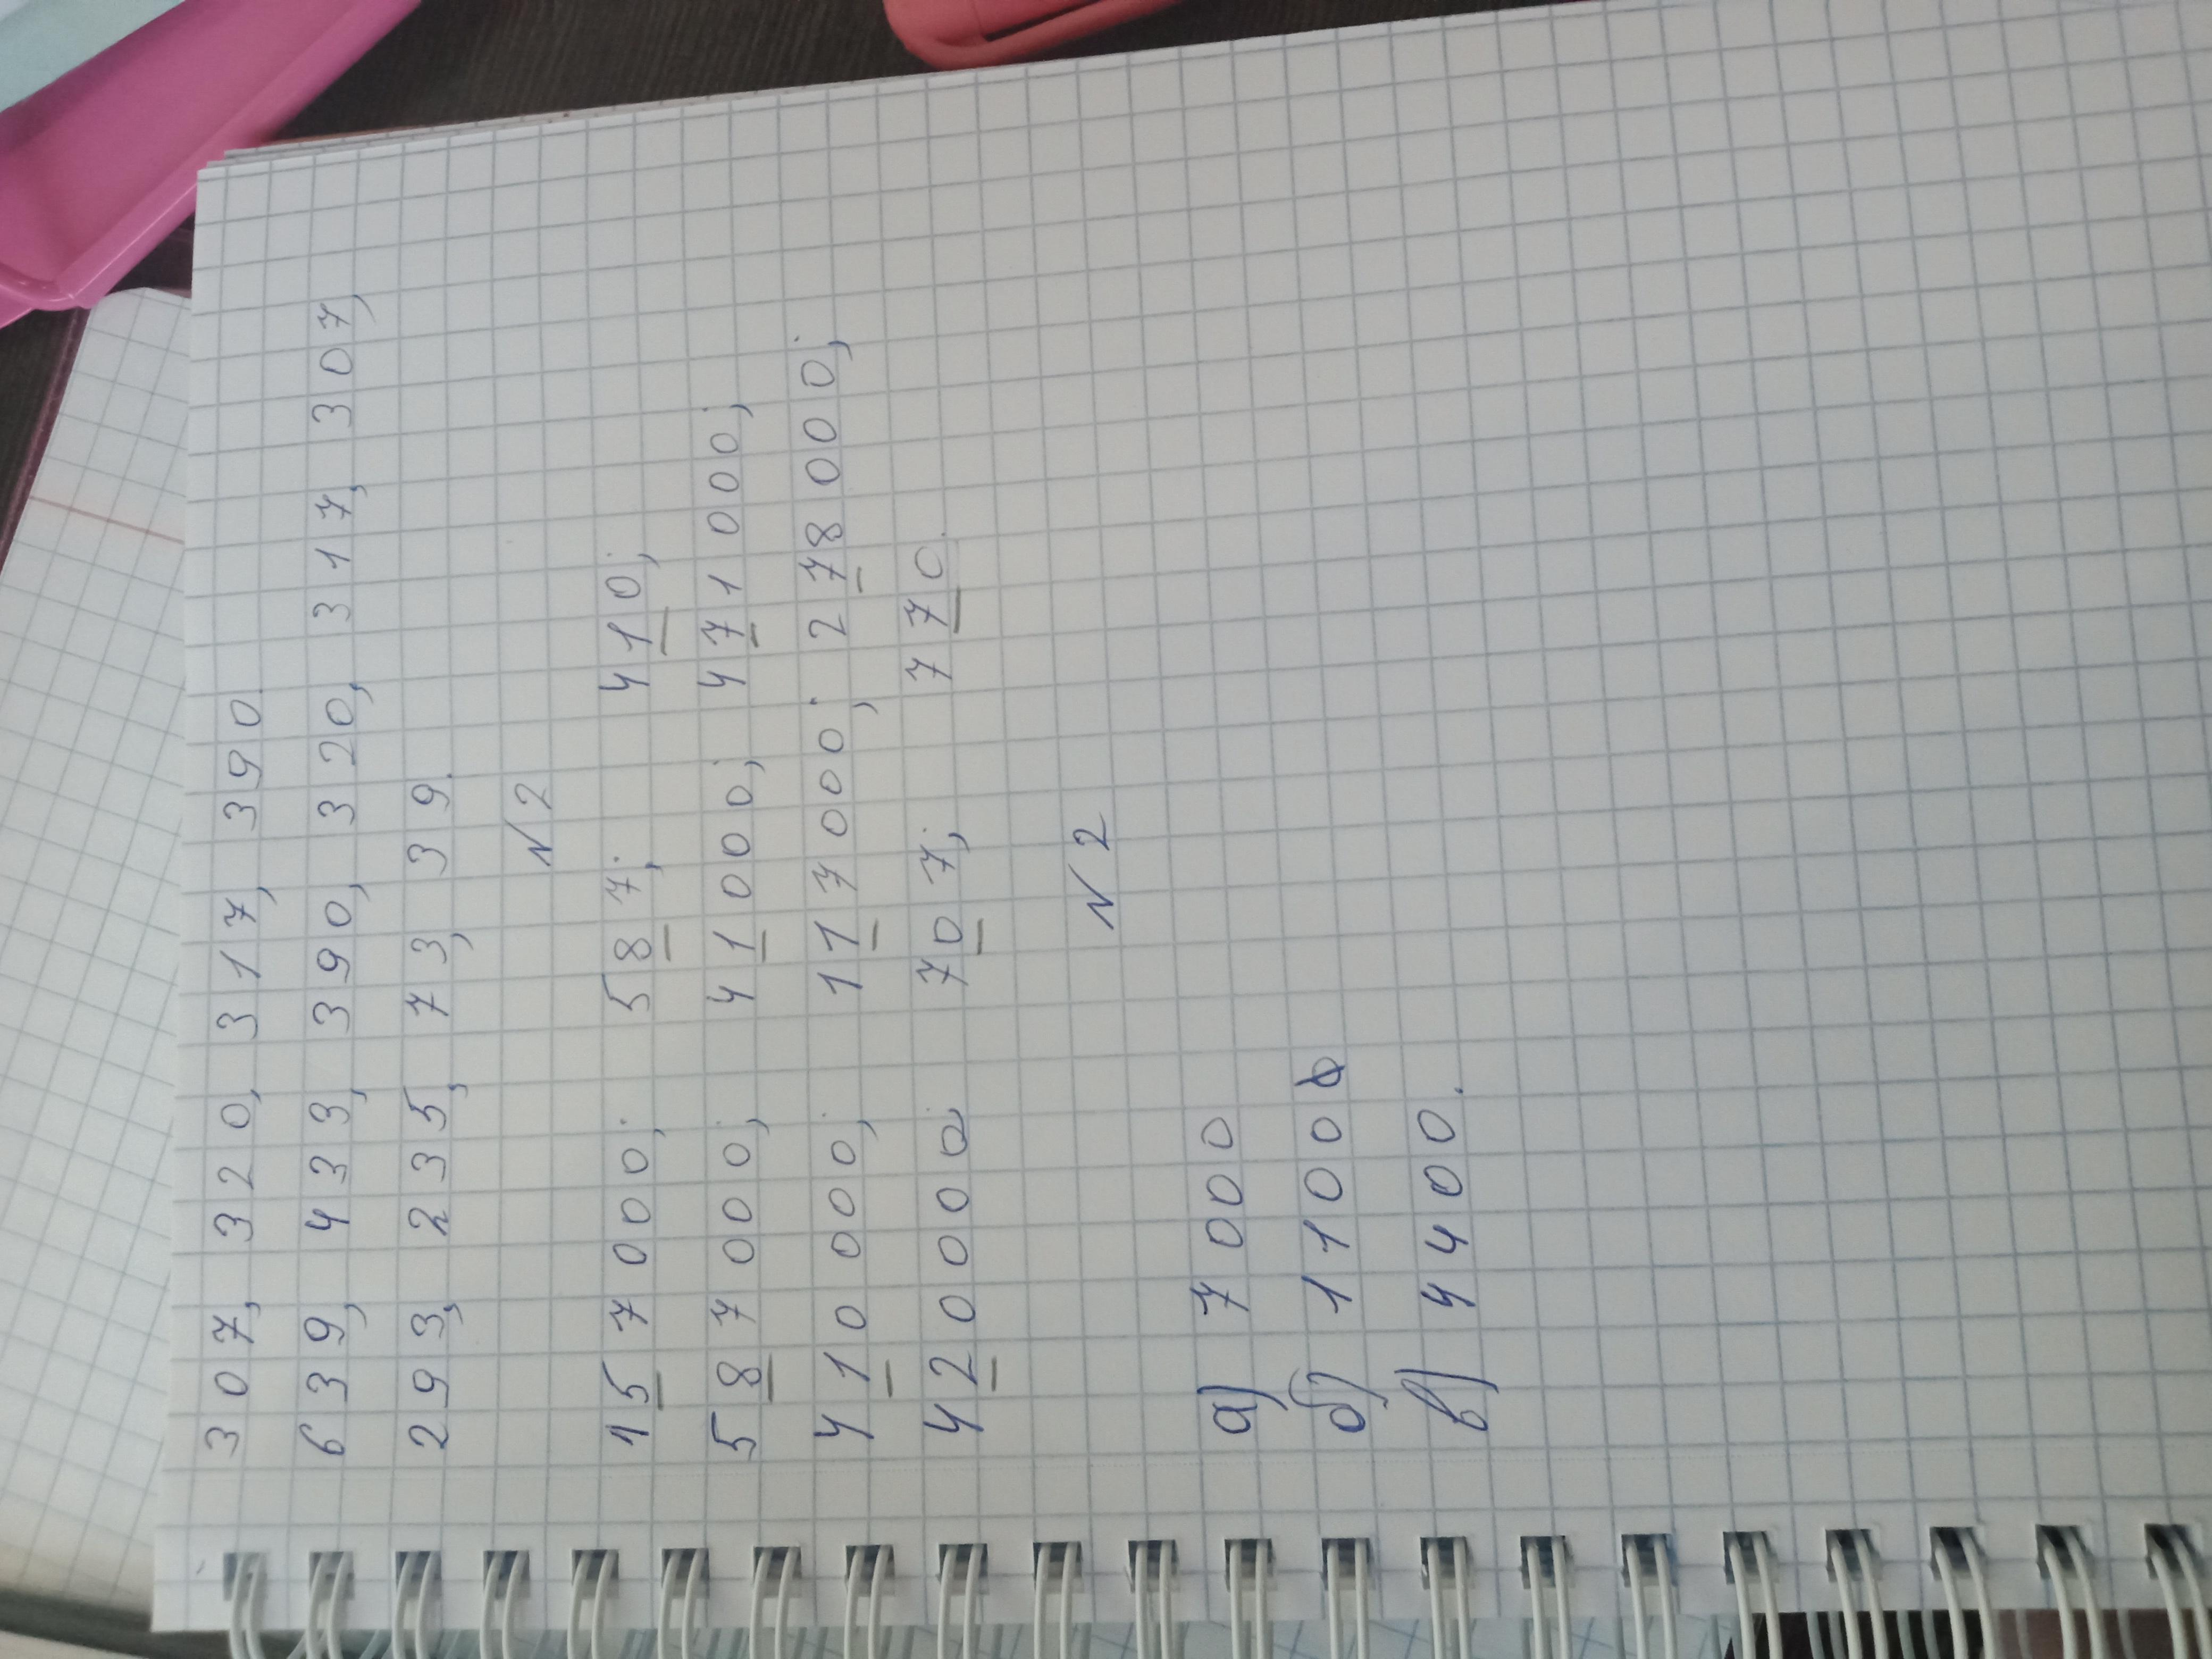 307, 320, 317, 390.
639, 433, 390, 320, 317, 307,
293, 235, 73, 39.
N2
157000; 587; 410;
587000; 41000; 471000;
410000; 117000; 278000;
420000; 707; 770.
N2
а) 7000
б) 1100
в) 4400.